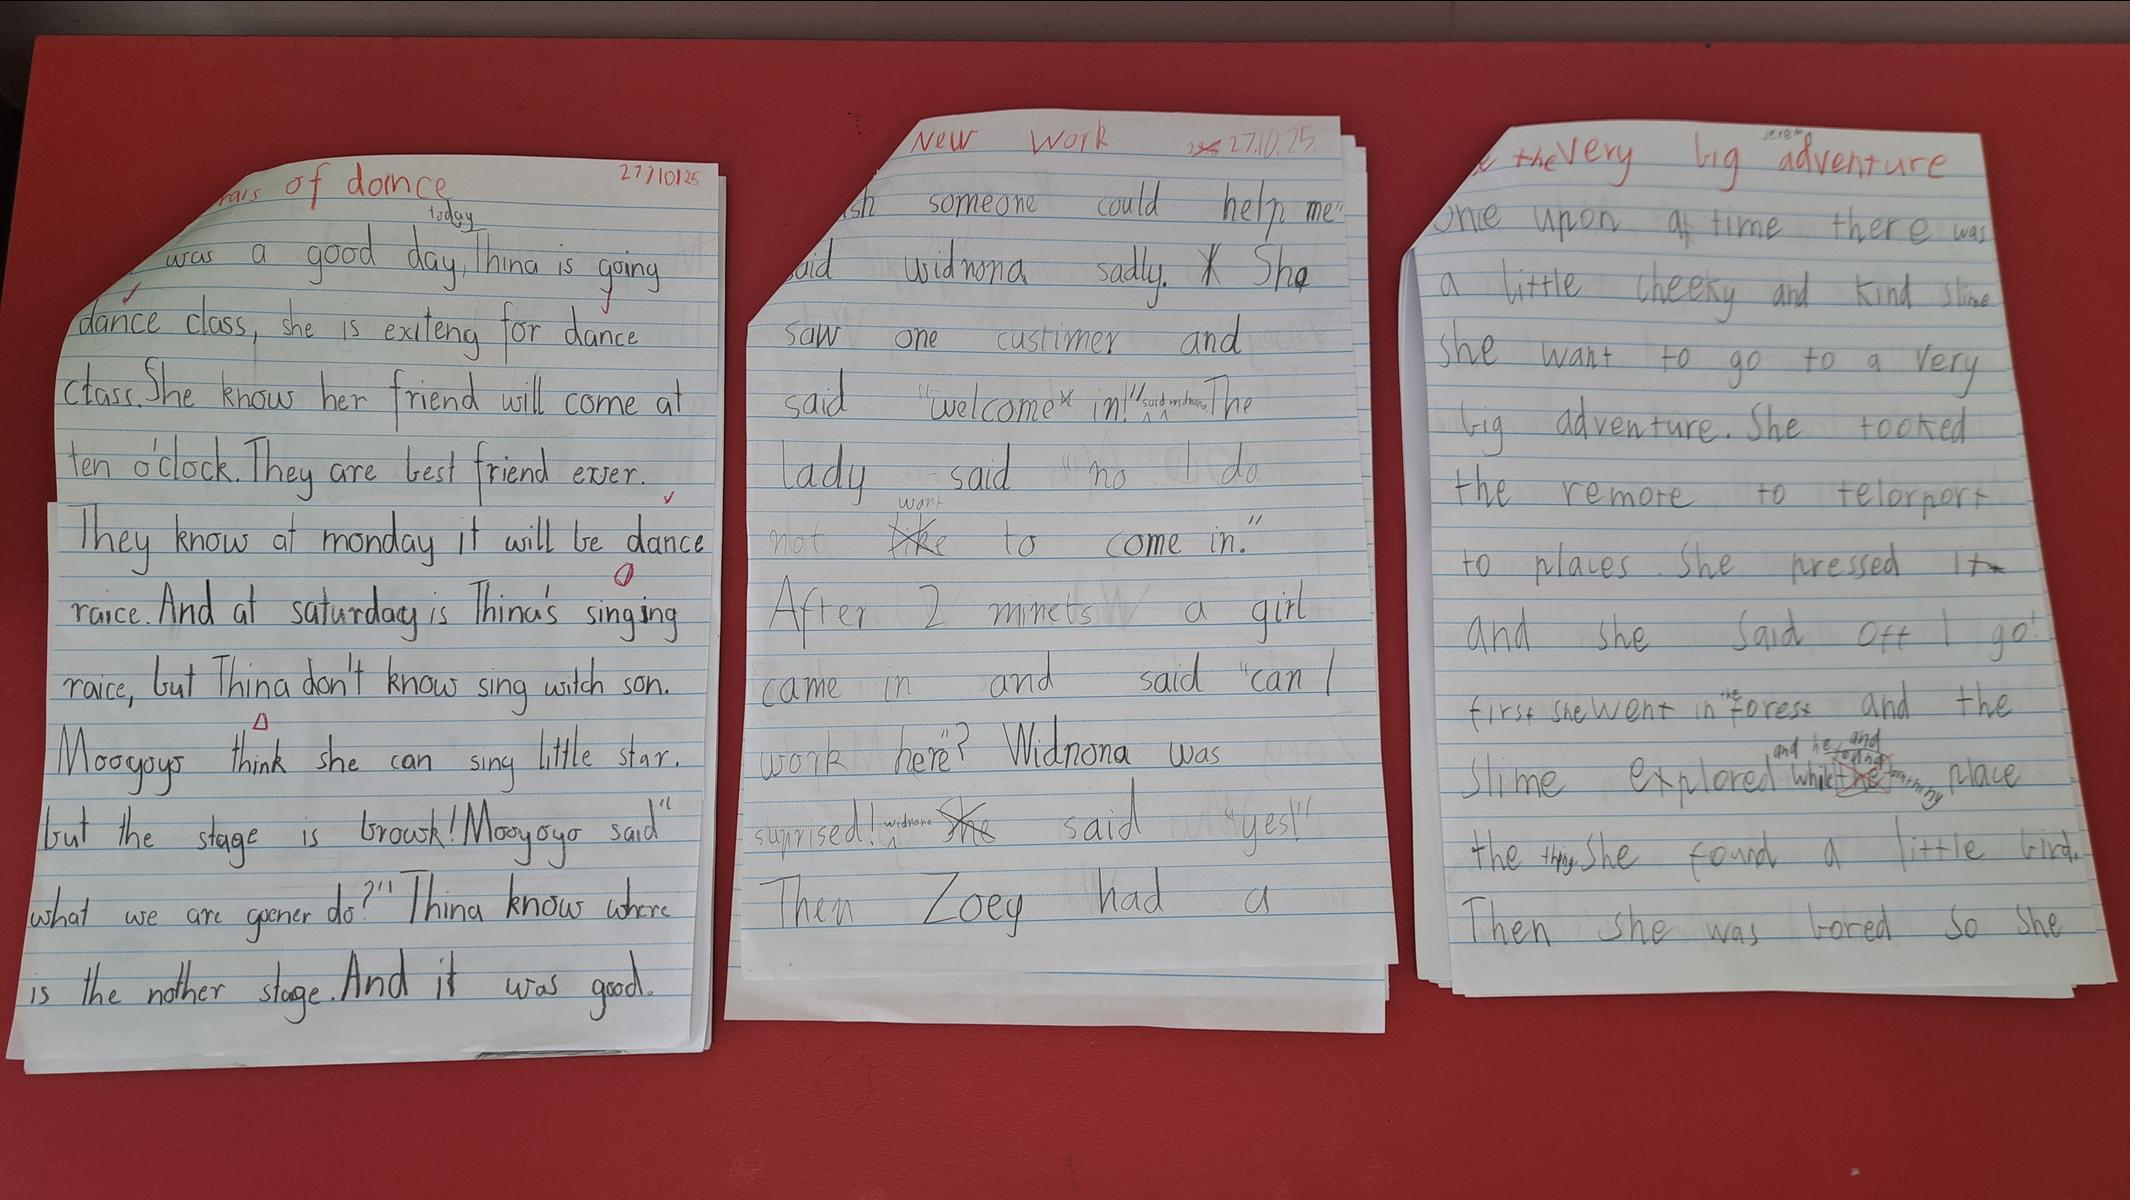 of dance 27/10/25
today
was a good day, Thina is going
dance class, she is exiteng for dance
class. She know her friend will come at
ten o'clock. They are best friend ever.
They know at monday it will be dance
raice. And at saturday is Thina's singing
raice, but Thina don't know sing witch son.
Mooyoyo think she can sing little star.
but the stage is browk! Mooyoyo said"
what we are goener do?"" Thina know where
is the nother stage. And it was good.
New Work 27.10.25.
sh someone could help me"
aid widnona sadly. She
saw one custimer and
said "welcome in!" said widnona The
lady said "no I do
want
not like to come in."
After 2 minets a girl
came in and said "can I
work here"? Widnona was
suprised! widnona She said "yes!"
Then Zoey had a
the Very big adventure
Once upon a time there was
a little cheeky and kind slime
she want to go to a very
big adventure. She tooked
the remote to telorport
to places. She pressed it
and she said off I go!
the
first she went in forest and the
and he and
slime explored while the place
the thing. She found a little bird.
Then she was bored so she